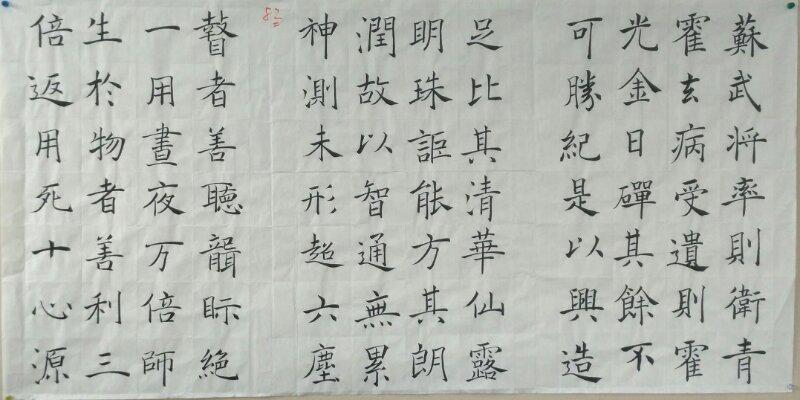 蘇武将率則衛青
霍去病受遺則霍
光金日磾其餘不
可勝紀是以興造
足比其清華仙露
明珠詎能方其朗
潤故以智通無累
神測未形超六塵
瞽者善聽聾眎絕
一用晝夜万倍師
生於物者善利三
倍返用死十心源